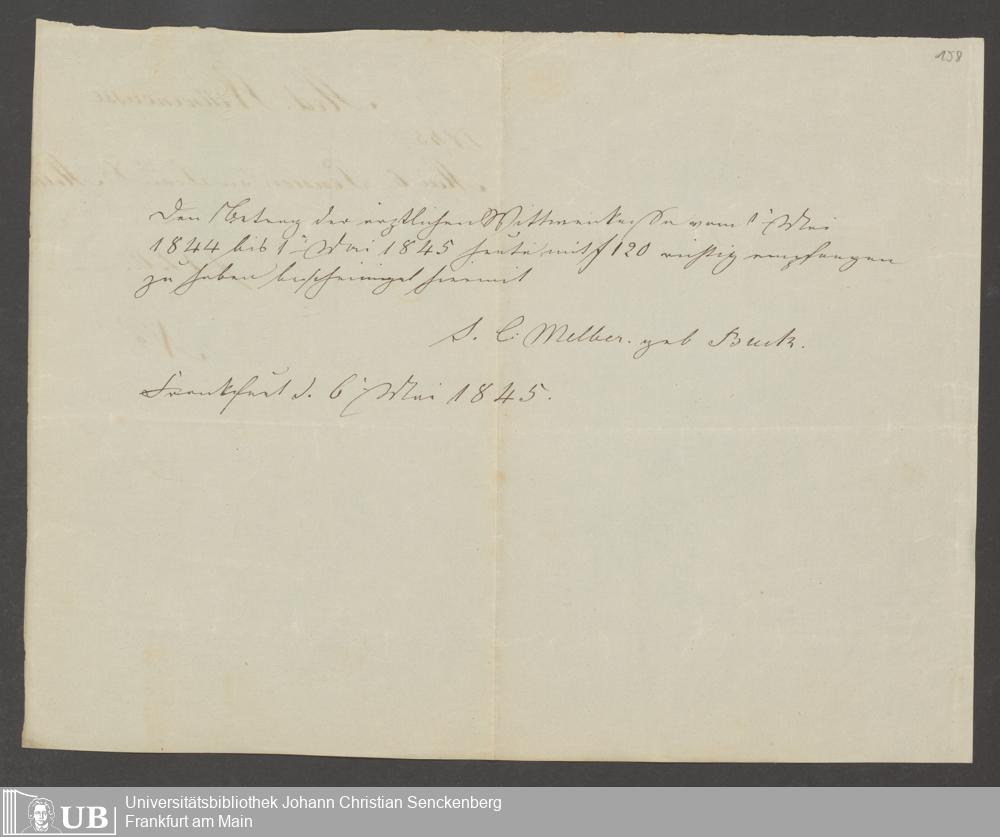 158
Den Betrag der ärztlichen Wittwenkasse vom 1' Mai
1844 bis 1' Mai 1845 heute mit f 120 richtig empfangen
zu haben bescheinigt hiermit
S. C. Melber. geb Buck.
Frankfurt d. 6' Mai 1845.
UB
Universitätsbibliothek Johann Christian Senckenberg
Frankfurt am Main